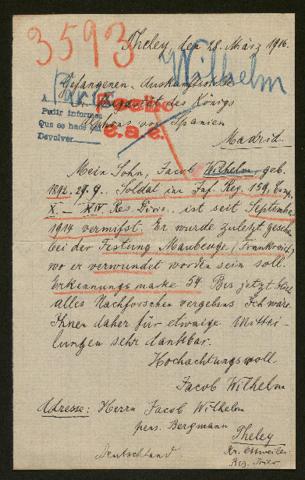 3593
Theley, den 28. März 1916.
Wilhelm
Gefangenen-Auskunftsstelle
des Königs
Alfons von Spanien
Madrid.
Pedir informes
Que se hace
Devolver
Mein Sohn, Jacob Wilhelm, geb.
1892. 29.9. Soldat im Inf. Reg. 159, Comp.
X. – XIV Res. Divis. ist seit September
1914 vermisst. Er wurde zuletzt gesehen
bei der Festung Maubeuge, (Frankreich)
wo er verwundet worden sein soll.
Erkennungsmarke 54. Bis jetzt blieb
alles Nachforschen vergebens. Ich wäre
Ihnen daher für etwaige Mittei-
lungen sehr dankbar.
Hochachtungsvoll
Jacob Wilhelm
Adresse: Herrn Jacob Wilhelm
pens. Bergmann
Theley
Deutschland
Kr. Ottweiler
Reg. Trier